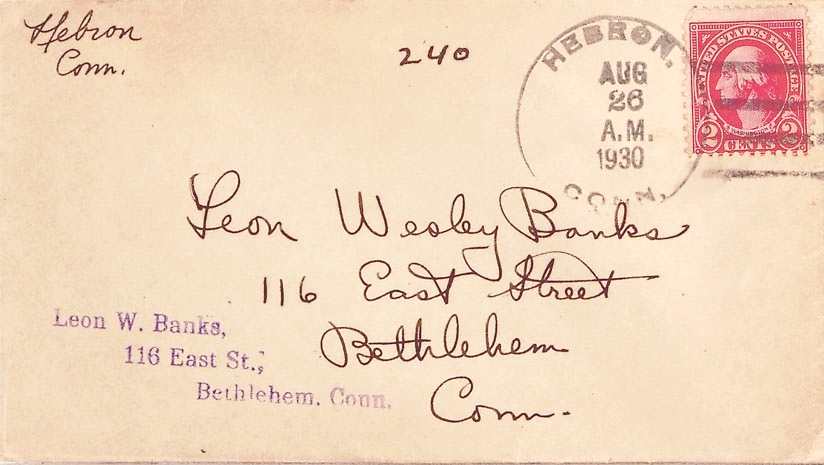 Hebron
Conn.
240
HEBRON.
AUG
26
A.M.
1930
CONN.
UNITED STATES POSTAGE
WASHINGTON
2 CENTS 2
Leon Wesley Banks
116 East Street
Bethlehem
Conn.
Leon W. Banks,
116 East St.,
Bethlehem, Conn.